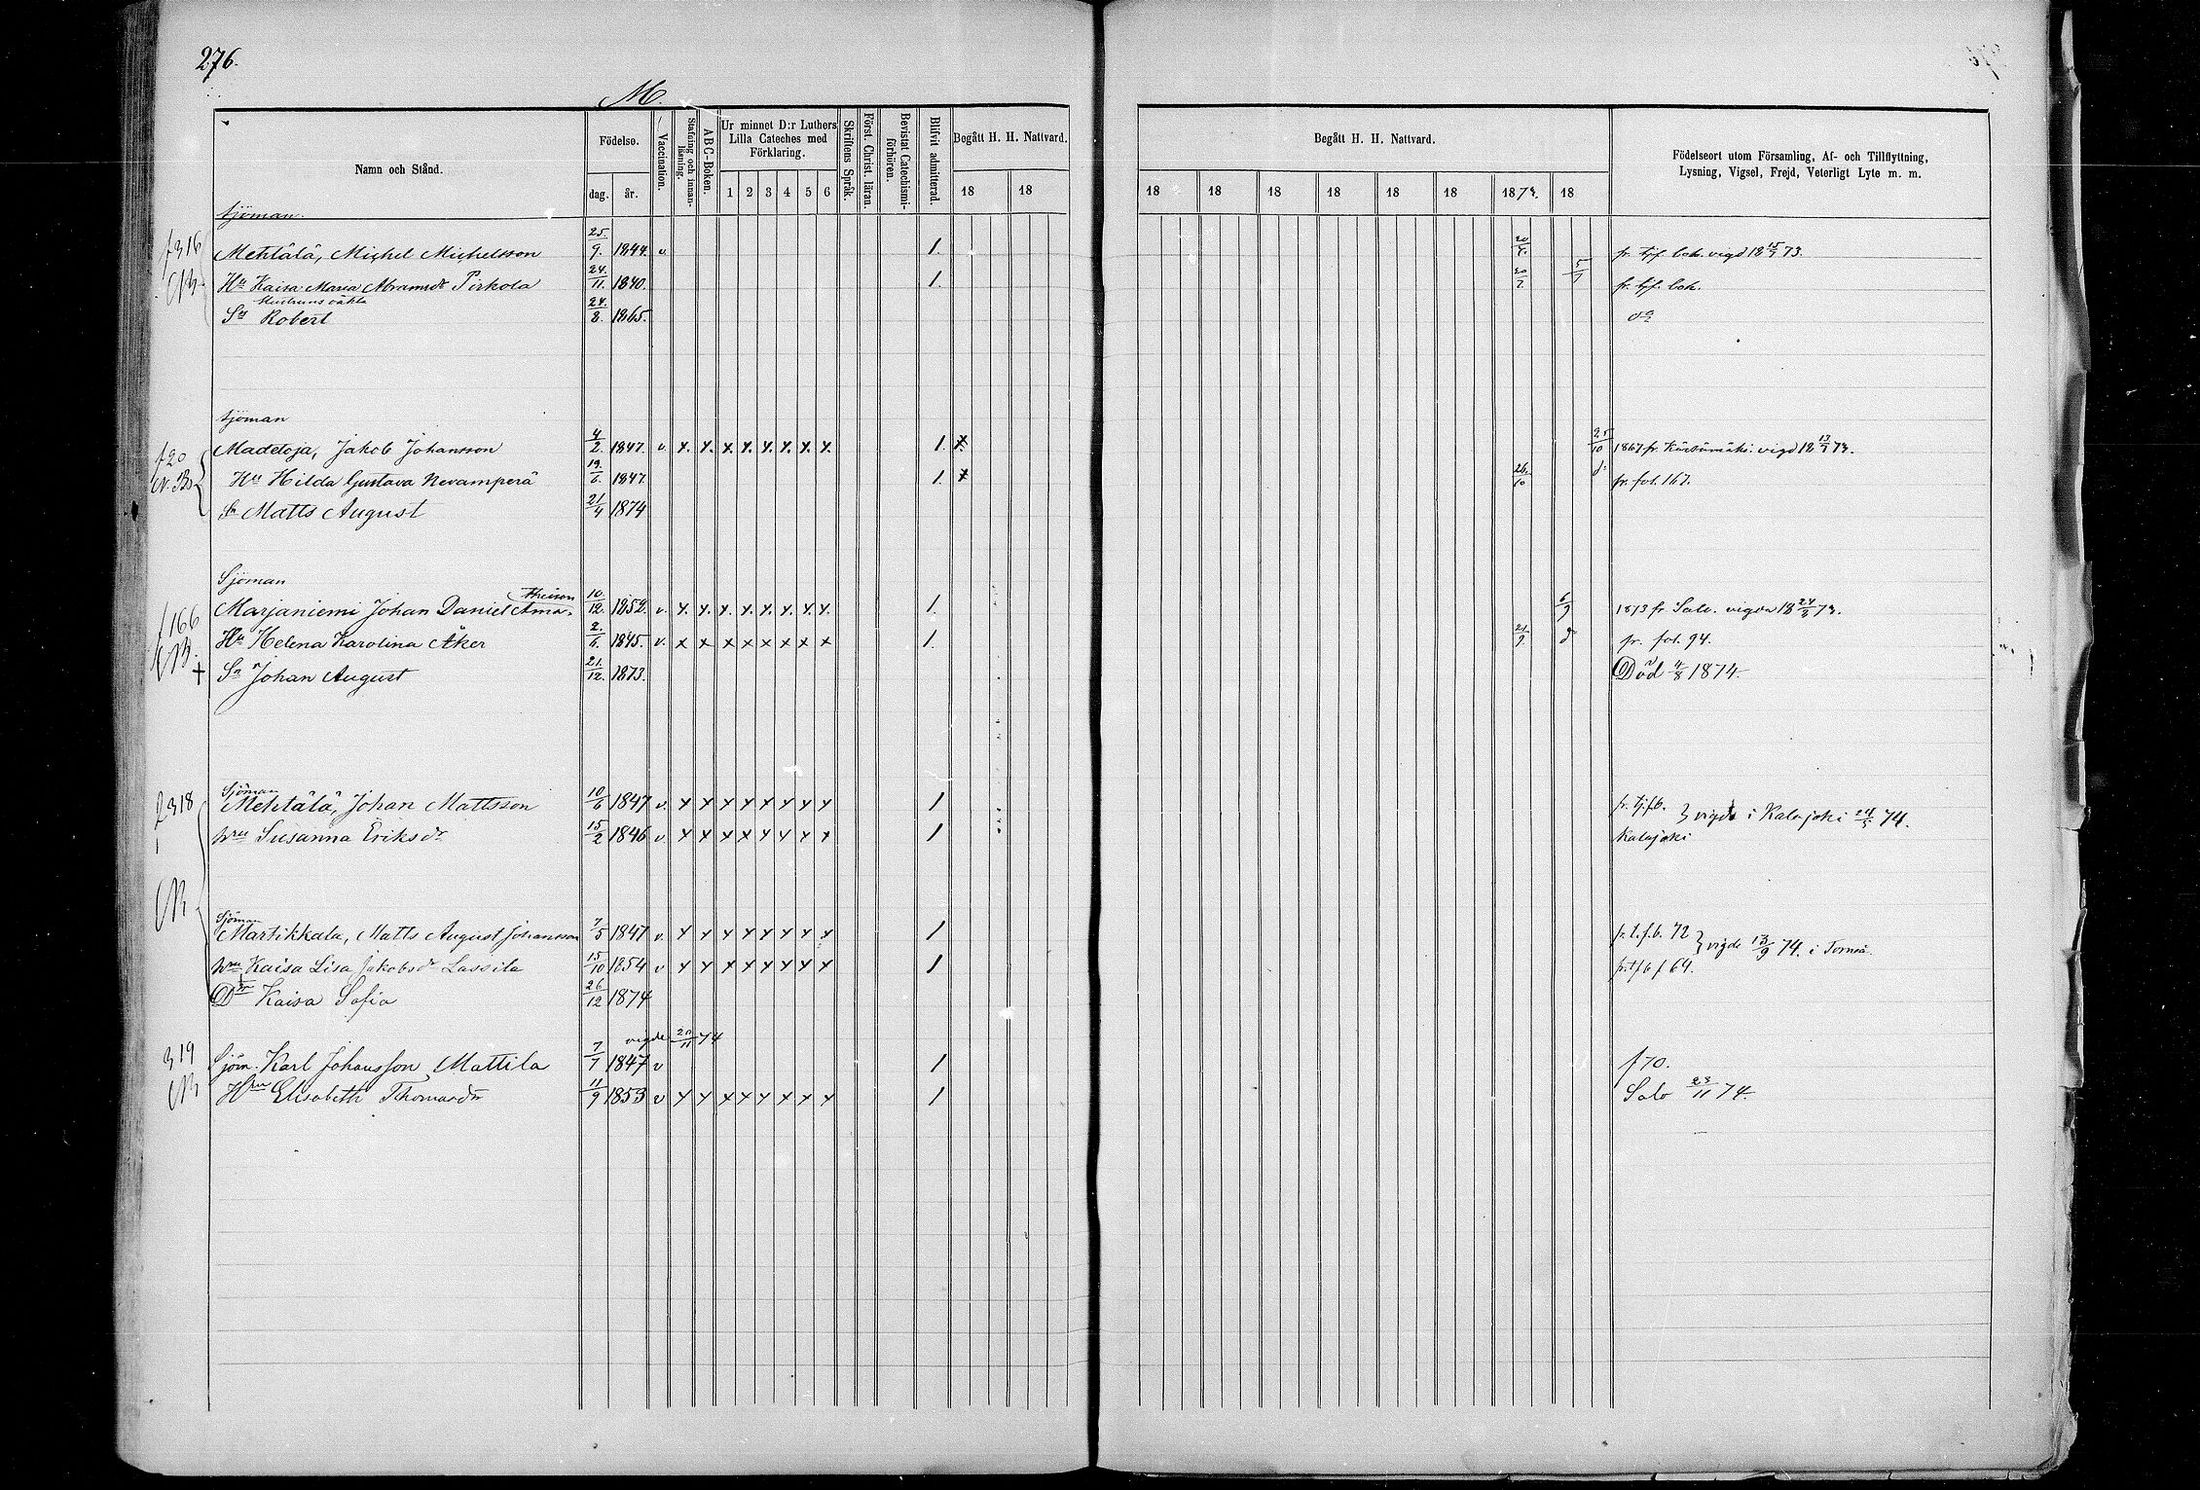 276.
M.
Namn och Stånd.
Födelse.
dag.
år.
Vaccination.
Stafning och innan-läsning.
ABC-Boken.
Ur minnet D:r Luthers Lilla Cateches med Förklaring.
1 2 3 4 5 6
Skriftens Språk.
Först. Christ. läran.
Bevistat Catechismi-förhören.
Blifvit admitterad.
Begått H. H. Nattvard.
18 18
Begått H. H. Nattvard.
18 18 18 18 18 18 1874. 18
Födelseort utom Församling, Af- och Tillflyttning,
Lysning, Vigsel, Frejd, Veterligt Lyte m. m.
sjöman.
f316 Mehtälä, Michel Michelsson 25/9. 1844. v. 1. fr. tjf. bok. vigd 18 15/7 73.
Hu Kaisa Maria Abramsdr Pirkola 24/11. 1840. 1. 5/7 fr. tjf. bok.
Sn Robert 24/8. 1865. do
sjöman
f20 Madetoja, Jakob Johansson 4/2. 1847. v. x. x. x x. x. x. x. x. 1. x 25/10 1867 fr. Kärsämäki. vigd 18 13/7 73.
N.B. Hu Hilda Gustava Nevamperä 19/6. 1847. 1. x 26/10 d:o fr. fol. 167.
Sn Matts August 21/4 1874
Sjöman
f166 Marjaniemi Johan Daniel 10/12. 1852. v. x. x. x. x. x. x. x. x. 1. 6/9 1873 fr Salo. vigda 18 24/8 73.
Hu Helena Karolina Åker 2/6. 1845. v. x x x x x x x x 1. 21/9. d fr. fol. 94.
+ Sn Johan August 21/12. 1873. Död 4/8 1874.
Sjöman
f318 Mehtälä, Johan Mattsson 10/6 1847 v. x x x x x x x x 1 fr. tj.f.b. } vigde i Kalajoki 24/5 74.
hru Susanna Eriksdr 15/2 1846 v x x x x x x x x 1 Kalajoki
Sjöman
Martikkala, Matts August Johansson 7/5 1847 v. x x x x x x x x 1 fr. t.f.b. 72 } vigde 13/9 74. i Torneå
hru Kaisa Lisa Jakobsdr Lassila 15/10 1854 v x x x x x x x x 1 fr. tfb f 64.
Dr Kaisa Sofia 26/12 1874
vigde 20/11 74
319 Sjöm. Karl Johansson Mattila 7/7 1847 v 1 f70.
Hru Elisabeth Thomasdr 11/9 1853 v x x x x x x x x 1 Salo 23/11 74.